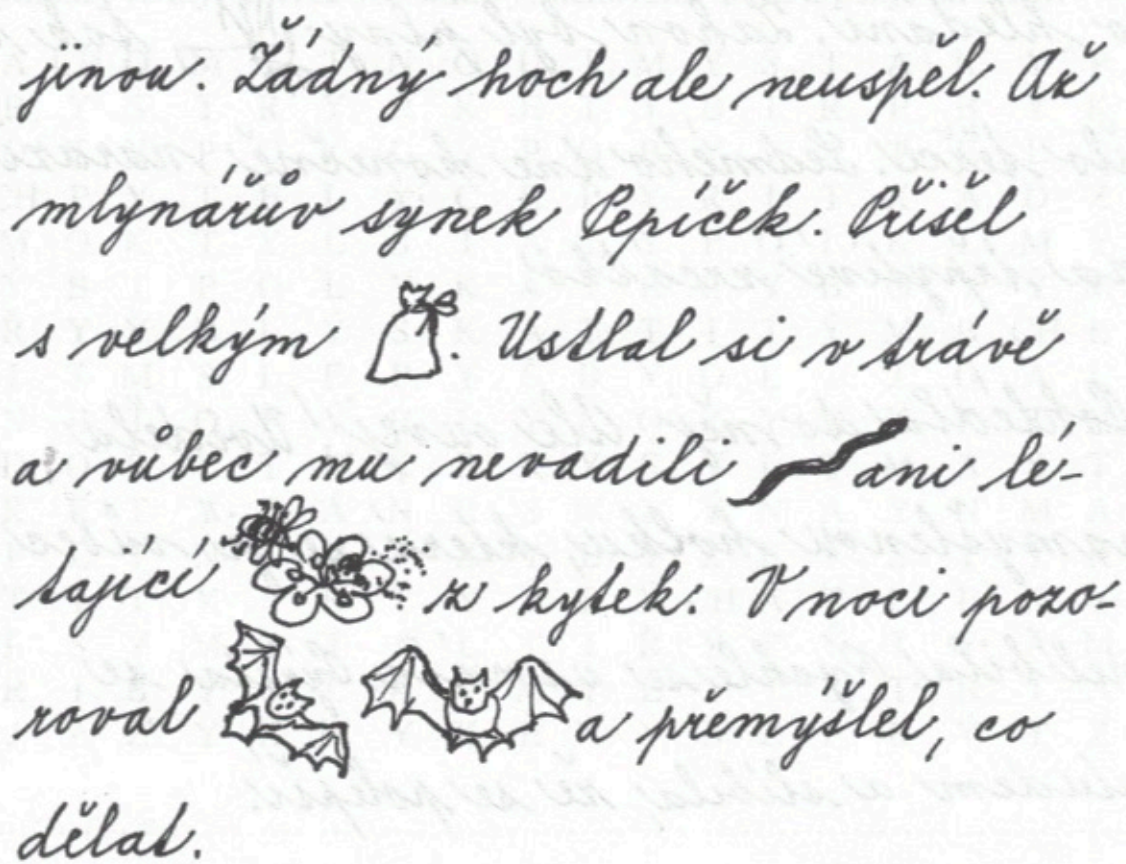 jinou. Žádný hoch ale neuspěl. Až
mlynářův synek Pepíček. Přišel
s velkým . Ustlal si v trávě
a vůbec mu nevadili ani lé-
tající z kytek. V noci pozo-
roval a přemýšlel, co
dělat.